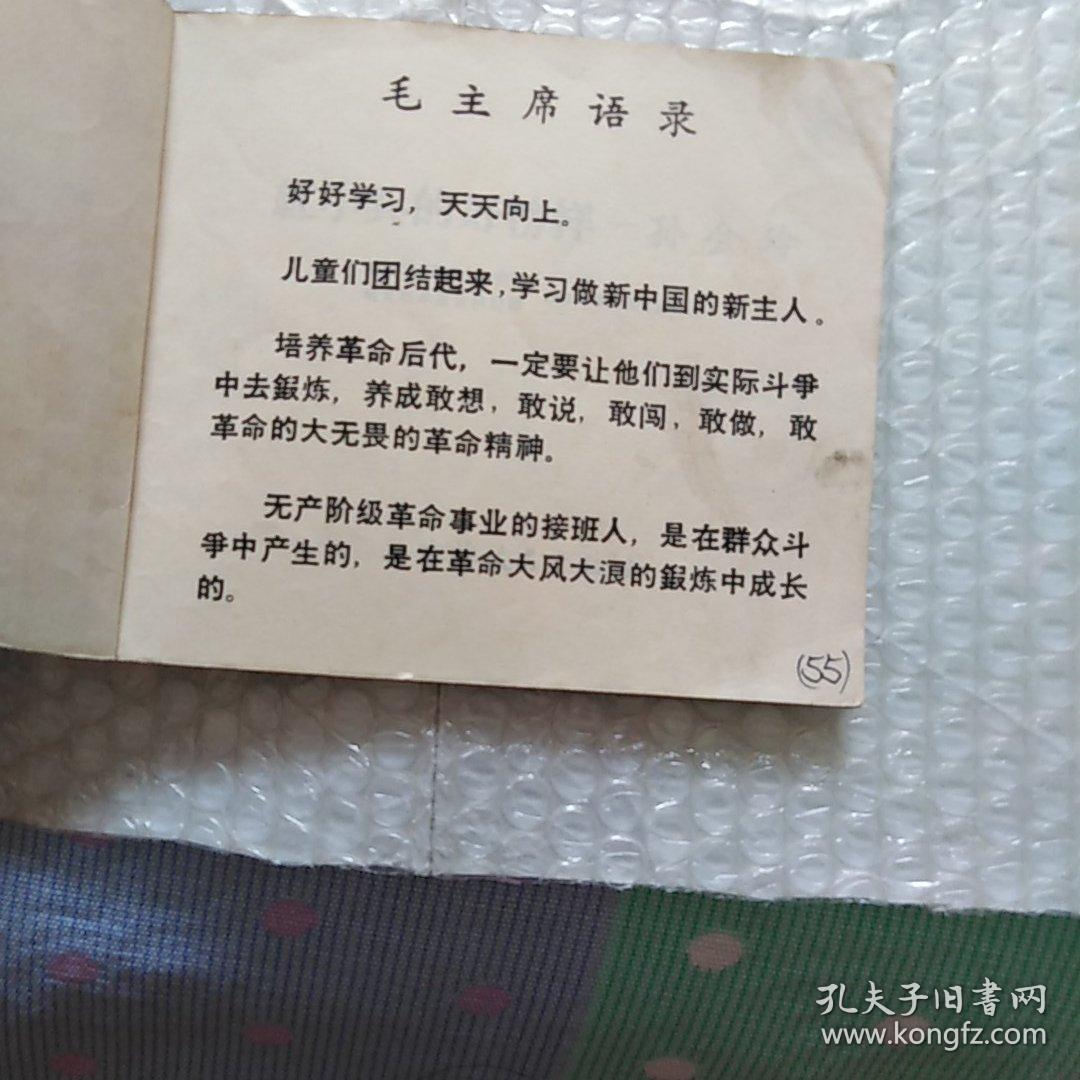 毛主席语录
好好学习，天天向上。
儿童们团结起来，学习做新中国的新主人。
培养革命后代，一定要让他们到实际斗爭
中去鍜炼，养成敢想，敢说，敢闯，敢做，敢
革命的大无畏的革命精神。
无产阶级革命事业的接班人，是在群众斗
爭中产生的，是在革命大风大浪的鍜炼中成长
的。
(55)
孔夫子旧書网
www.kongfz.com